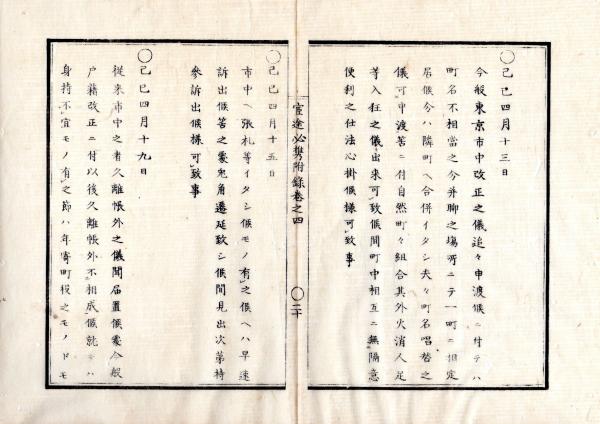 〇己巳四月十三日
今般東京市中改正之儀追々申渡候ニ付テハ
町名不相當之分并聊之塲所ニテ一町ニ相定
居候分ハ隣町ヘ合併イタシ夫々町名唱替之
儀可申渡筈ニ付自然町々組合其外火消人足
等入狂之儀出來可致候間町中相互ニ無隔意
便利之仕法心掛候様可致事
宦途必携附錄巻之四
〇二十
〇己巳四月十五日
市中ヘ張札等イタシ候モノ有之候ヘハ早速
訴出候筈之處兎角遷延致シ候間見出次第持
參訴出候様可致事
〇己巳四月十九日
從来市中之者久離帳外之儀聞届置候處今般
戸籍改正ニ付以後久離帳外不相成候就テハ
身持不宜モノ有之節ハ年寄町役之モノドモ